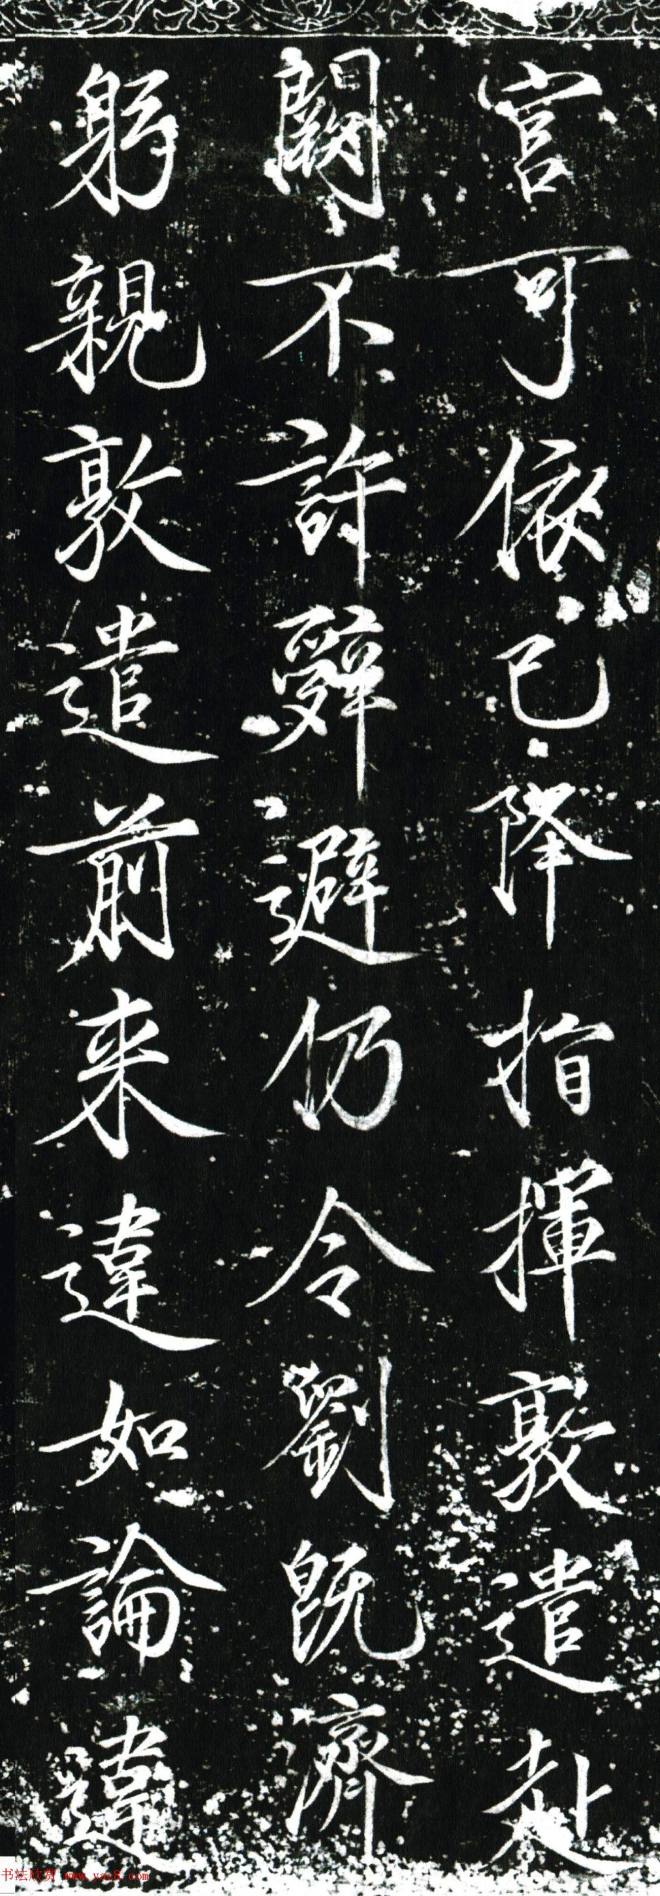 官可依已降指揮敦遣赴
闕不許辭避仍令劉既濟
躬親敦遣前來違如論違
书法欣赏 www.yac8.com